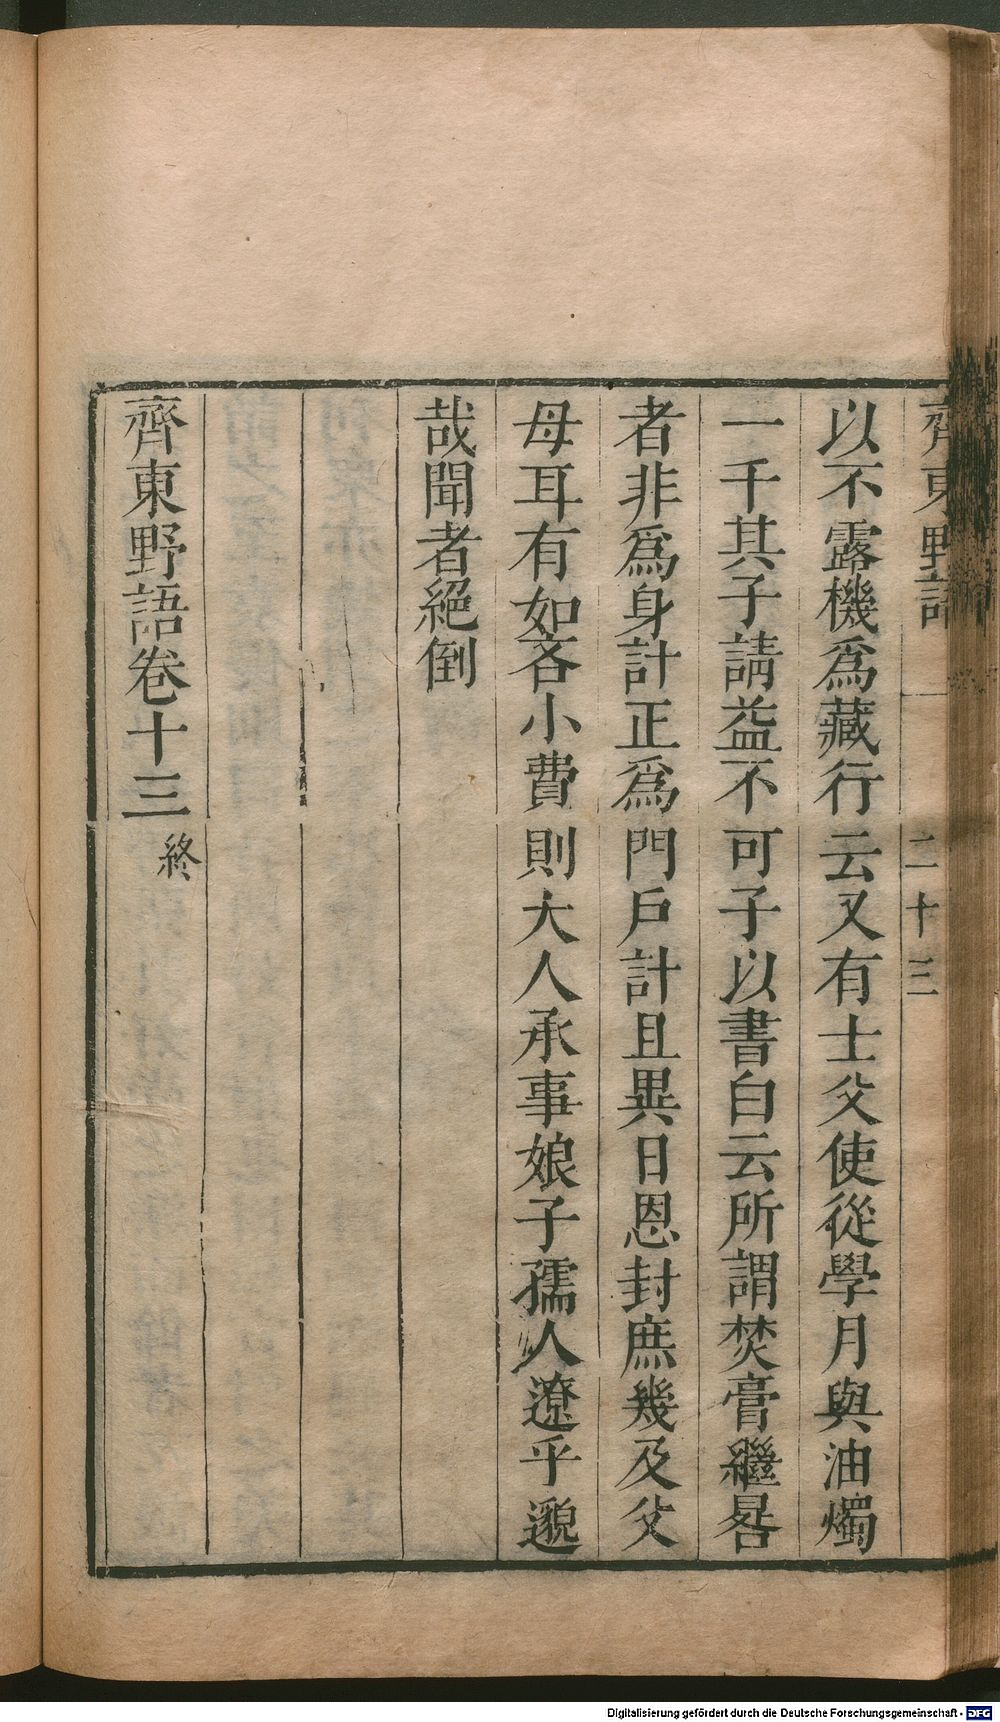 齊東野語 二十三
以不露機爲藏行云又有士父使從學月與油燭
一千其子請益不可子以書白云所謂焚膏繼晷
者非爲身計正爲門戶計且異日恩封庶幾及父
母耳有如吝小費則大人承事娘子孺人遼乎邈
哉聞者絕倒
齊東野語卷十三終
Digitalisierung gefördert durch die Deutsche Forschungsgemeinschaft - DFG